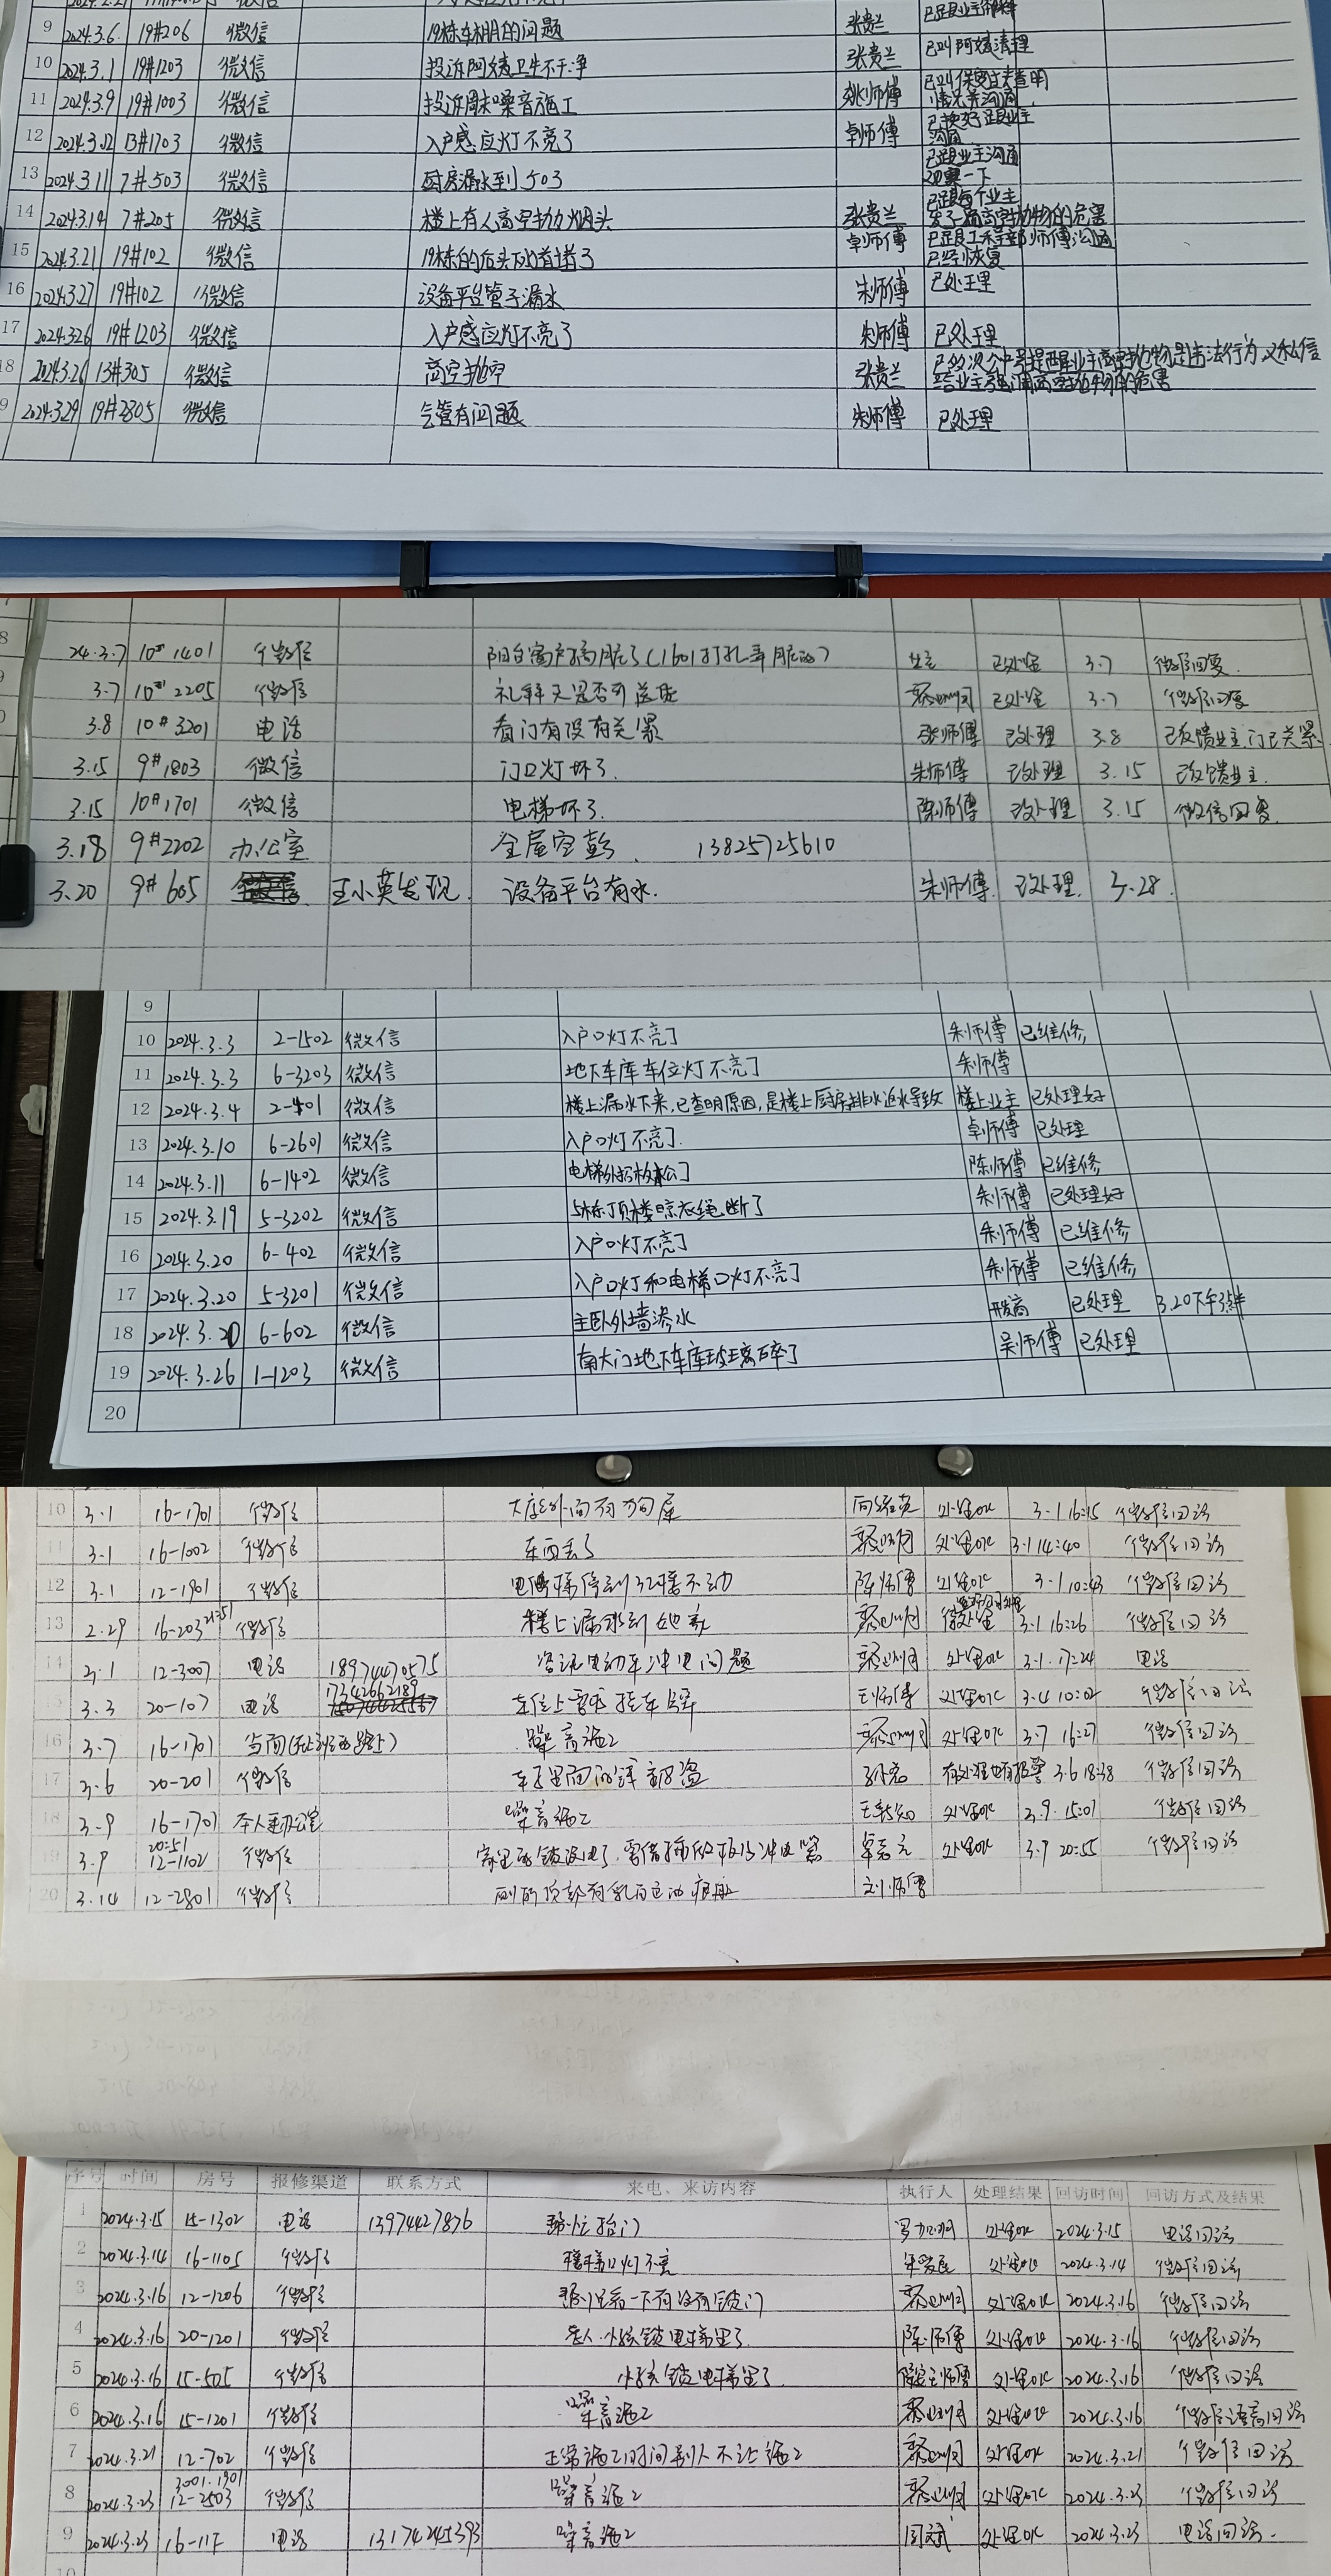 9 2024.3.6 19#206 微信 19栋车棚的问题 张贵兰
10 2024.3.1 19#1203 微信 投诉阿姨卫生不干净 张贵兰 已叫阿姨清理
11 2024.3.9 19#1003 微信 投诉周末噪音施工 师傅 已叫保安去查明情况并沟通.
12 2024.3.12 13#1703 微信 入户感应灯不亮了 卓师傅 已换好 跟业主沟通
13 2024.3.11 7#503 微信 厨房漏水到503 已跟业主沟通 观察一下
14 2024.3.14 7#205 微信 楼上有人高空抛烟头 张贵兰 已跟每个业主发了一篇高空抛物的危害
15 2024.3.21 19#102 微信 19栋的后头下水道堵了 卓师傅 已跟工程部师傅沟通 已经恢复
16 2024.3.27 19#102 微信 设备平台管子漏水 朱师傅 已处理
17 2024.3.26 19#1203 微信 入户感应灯不亮了 朱师傅 已处理
18 2024.3.26 13#305 微信 高空抛 张贵兰 已多次公告提醒业主高空抛物是违法行为 又私信给业主强调高空抛物的危害
19 2024.3.29 19#2305 微信 气管有问题 朱师傅 已处理
24.3.7 10# 1401 微信 阳台窗户搞脏了(1601打孔弄脏的) 3.7 微信回复.
3.7 10# 2205 微信 礼拜天是否可 3.7 微信回复
3.8 10# 3201 电话 看门有没有关紧 张师傅 已处理 3.8 已反馈业主门已关紧.
3.15 9#1803 微信 门口灯坏了. 朱师傅 已处理 3.15 已反馈业主.
3.15 10#1701 微信 电梯坏了. 陈师傅 已处理 3.15 微信回复.
3.18 9#2202 办公室 全屋空鼓. 13825725610
3.20 9# 605 王小英发现. 设备平台有水. 朱师傅. 已处理. 3.28.
9
10 2024.3.3 2-1502 微信 入户口灯不亮了 朱师傅 已维修
11 2024.3.3 6-3203 微信 地下车库车位灯不亮了 朱师傅
12 2024.3.4 2-401 微信 楼上漏水下来,已查明原因,是楼上厨房排水返水导致 楼上业主 已处理好
13 2024.3.10 6-2601 微信 入户口灯不亮了. 卓师傅 已处理
14 2024.3.11 6-1402 微信 电梯外 陈师傅 已维修
15 2024.3.19 5-3202 微信 5栋顶楼晾衣绳断了 朱师傅 已处理好
16 2024.3.20 6-402 微信 入户口灯不亮了 朱师傅 已维修
17 2024.3.20 5-3201 微信 入户口灯和电梯口灯不亮了 朱师傅 已维修
18 2024.3.20 6-602 微信 主卧外墙渗水 开发商 已处理 3.20下午3点半
19 2024.3.26 1-1203 微信 南大门地下车库玻璃碎了 吴师傅 已处理
20
10 3.1 16-1701 微信 大厅外面有狗屎 处理OK 3.1 16:15 微信回访
11 3.1 16-1002 微信 东西丢了 处理OK 3.1 14:40 微信回访
12 3.1 12-1901 微信 陈师傅 处理OK 3.1 10:43 微信回访
13 2.29 16-203 21:51 微信 楼上漏水到她家 3.1 16:26 微信回访
14 3.1 12-3007 电话 18974470575 咨询电动车冲电问题 处理OK 3.1.17:24 电话
15 3.3 20-107 电话 17342662189 王师傅 处理OK 3.4 10:02 微信回访
16 3.7 16-1701 噪音施工 处理OK 3.7 16:27 微信回访
17 3.6 20-201 微信 3.6 18:38 微信回访
18 3.9 16-1701 本人来办公室 噪音施工 处理OK 3.9.15:07 微信回访
19 3.9 20:51 12-1102 微信 处理OK 3.9 20:55 微信回访
20 3.14 12-2801 微信 刘师傅
序号 时间 房号 报修渠道 联系方式 来电、来访内容 执行人 处理结果 回访时间 回访方式及结果
1 2024.3.15 15-1302 电话 13974427876 处理OK 2024.3.15 电话回访
2 2024.3.14 16-1105 微信 楼梯口灯不亮 处理OK 2024.3.14 微信回访
3 2024.3.16 12-1206 微信 看一下有没有锁门 处理OK 2024.3.16 微信回访
4 2024.3.16 20-1201 微信 老人.小孩锁电梯里了. 陈师傅 处理OK 2024.3.16 微信回访
5 2024.3.16 15-505 微信 小孩锁电梯里了. 处理OK 2024.3.16 微信回访
6 2024.3.16 15-1201 微信 噪音施工 处理OK 2024.3.16 微信语音回访
7 2024.3.21 12-702 微信 正常施工时间别人不让施工 处理OK 2024.3.21 微信回访
8 2024.3.23 3001.1901 12-2503 微信 噪音施工 处理OK 2024.3.23 微信回访
9 2024.3.23 电话 13174245393 噪音施工 处理OK 2024.3.23 电话回访.
10